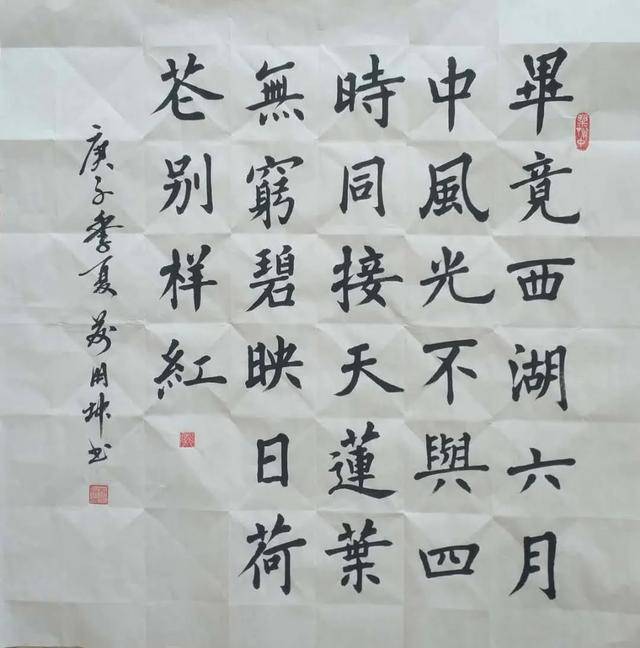 畢竟西湖六月
中風光不與四
時同接天蓮葉
無窮碧映日荷
花别样紅
庚子季夏用坤书